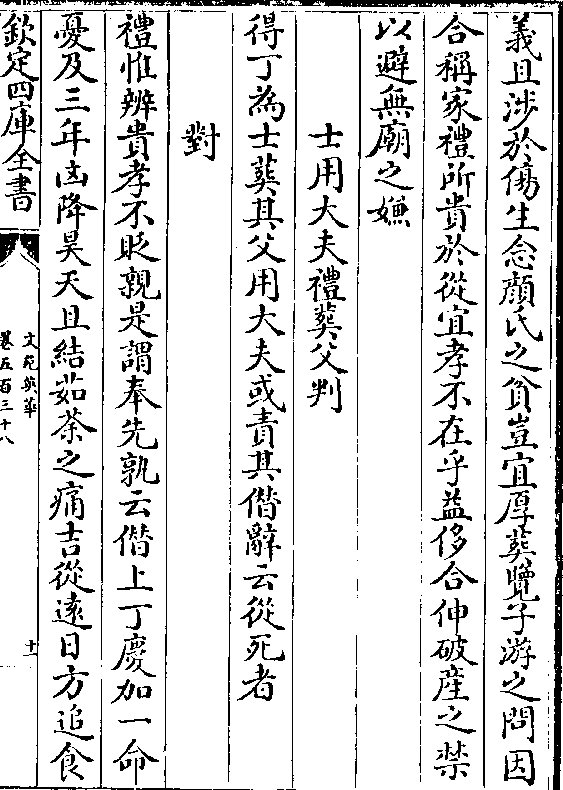 義且渉於傷生念顔氏之貧豈宜厚葬覽子游之問因
合稱家禮所貴於從宜孝不在乎益侈合伸破産之禁
以避無廟之嫌
士用大夫禮葬父判
得丁為士葬其父用大夫或責其僭辭云從死者
對
禮惟辨貴孝不貶親是謂奉先孰云僭上丁慶加一命
憂及三年凶降昊天且結茹荼之痛吉從遠日方追食
欽定四庫全書
文苑英華
卷五百三十八
十一